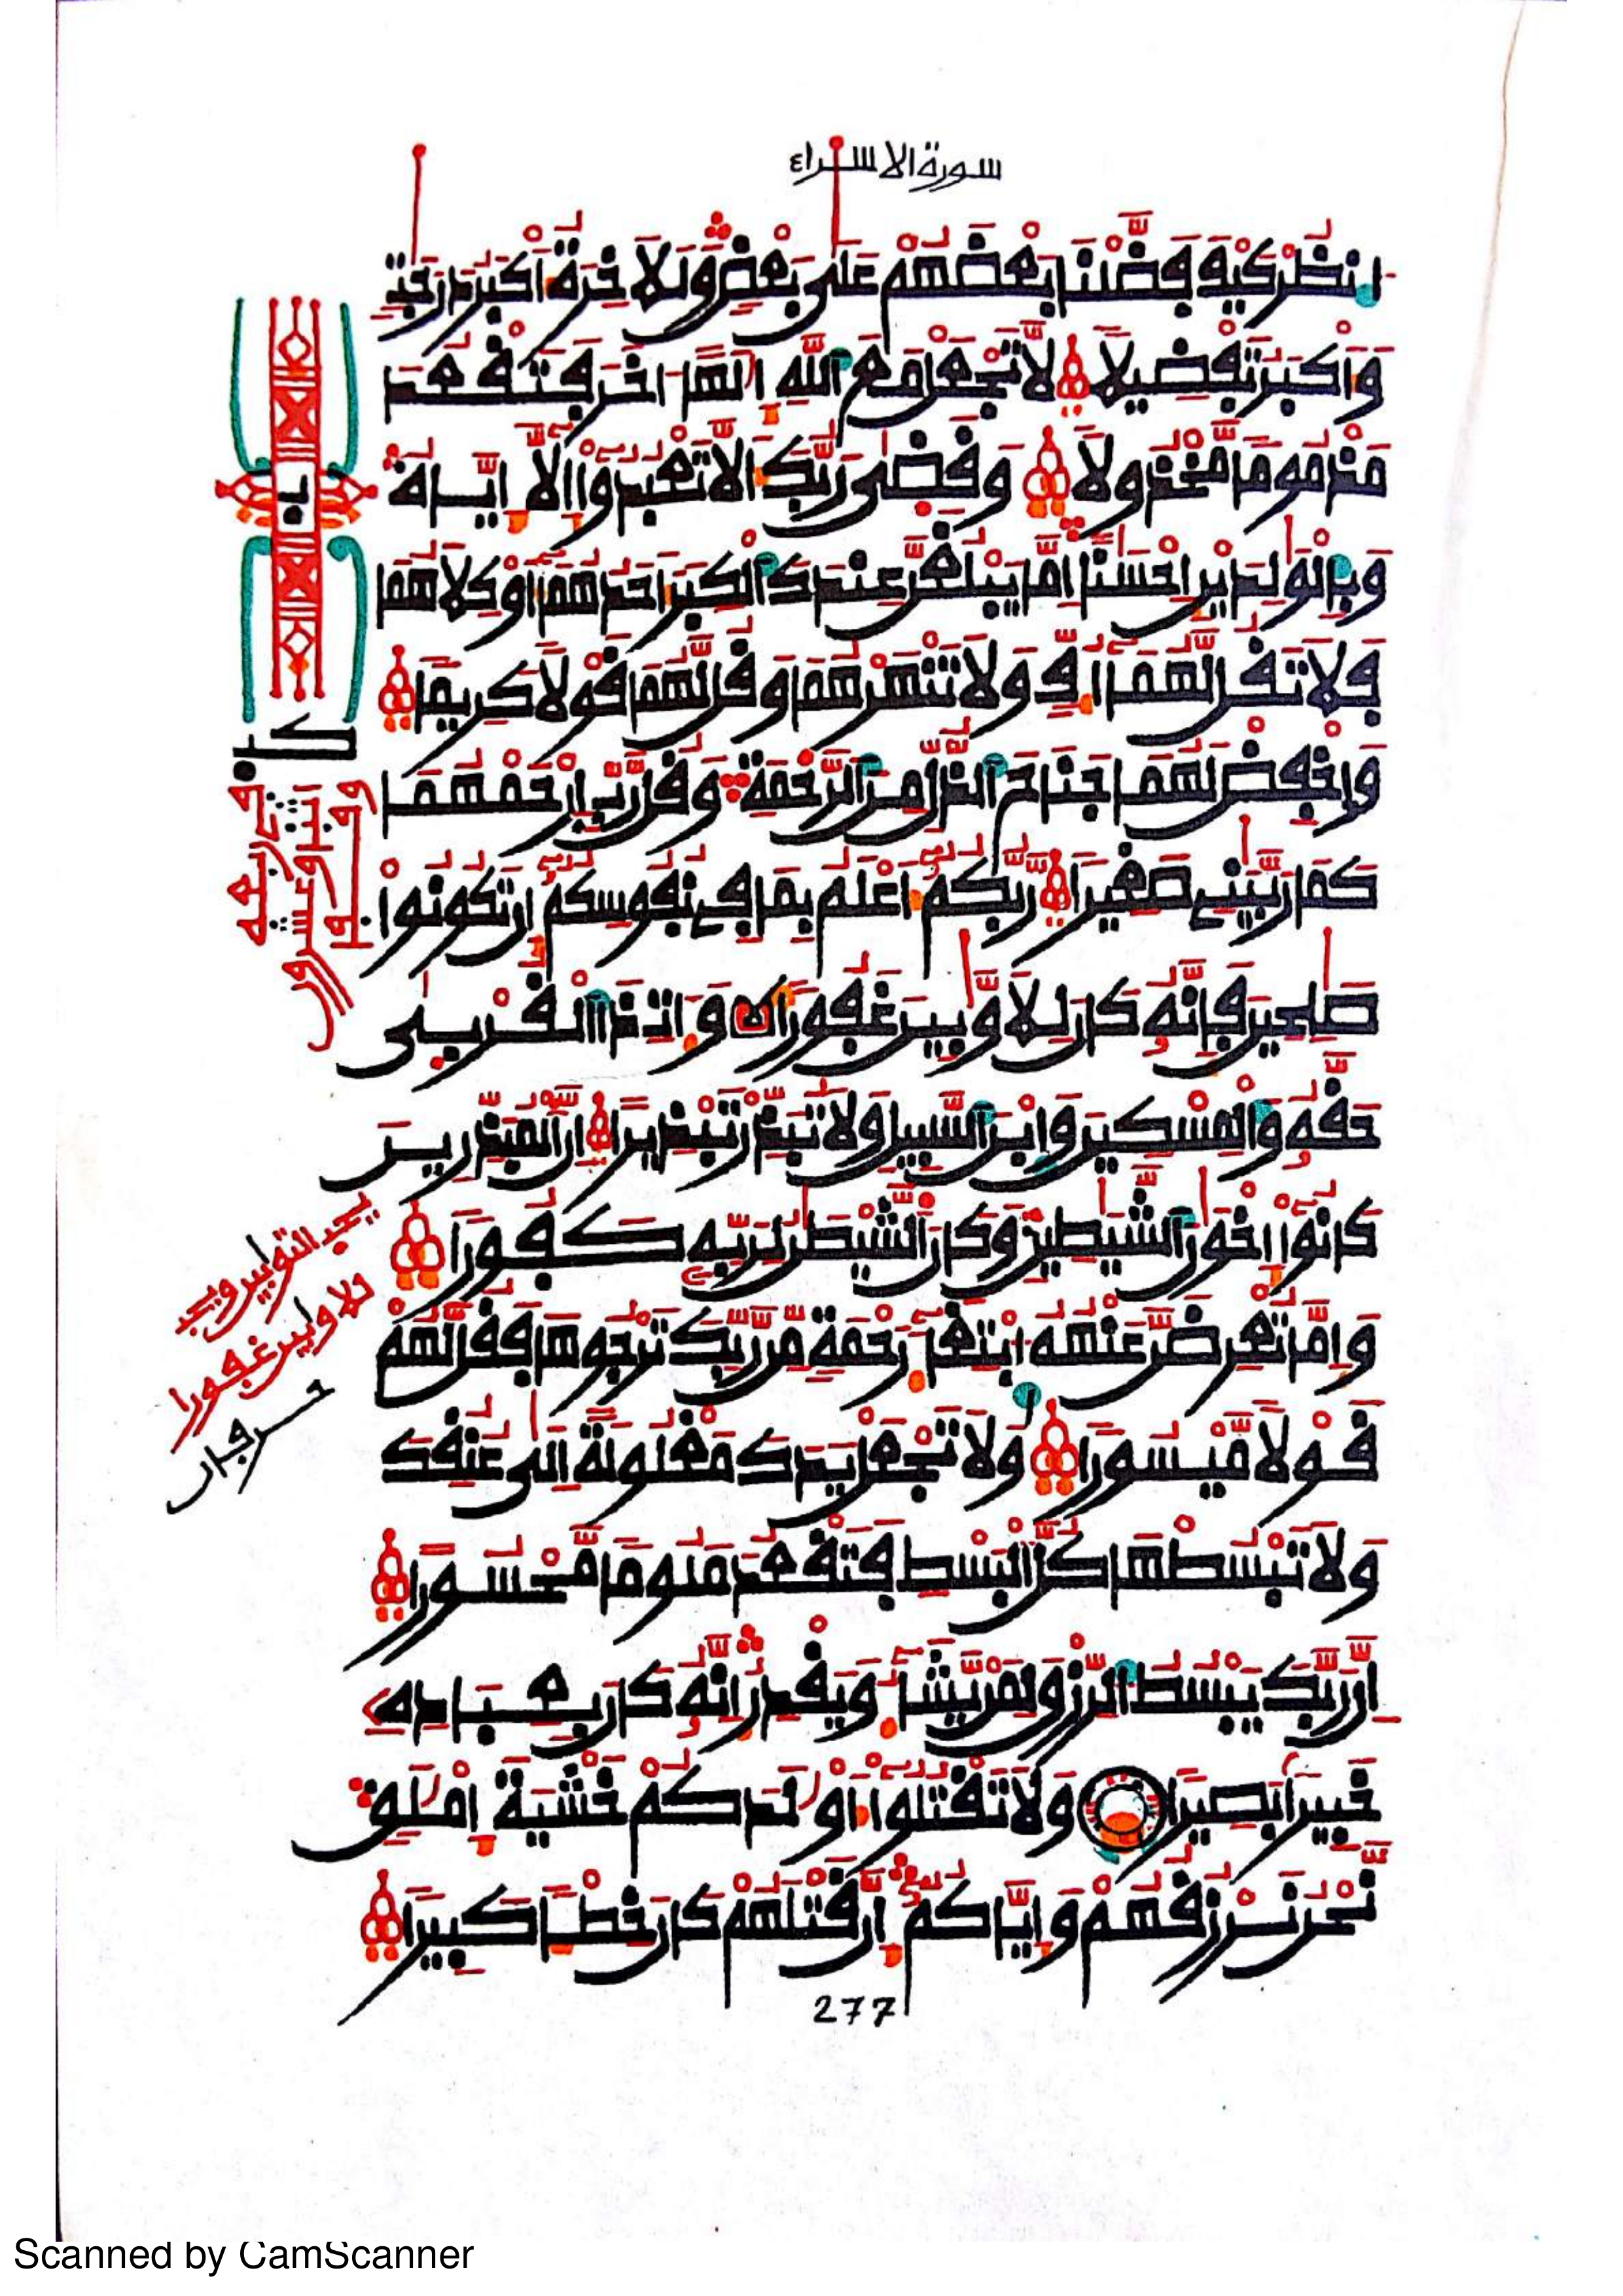 سورة الاسراء
انظر كيف فضلنا بعضهم على بعض وللاخرة أكبر درجت
وأكبر تفضيلا لا تجعل مع الله إلها اخر فتقعد
مذموما مخذولا وقضى ربك ألا تعبدوا إلا إياه
وبالولدين إحسنا إما يبلغن عندك الكبر أحدهما أو كلاهما
فلا تقل لهما أف ولا تنهرهما وقل لهما قولا كريما
واخفض لهما جناح الذل من الرحمة وقل رب ارحمهما
كما ربيني صغيرا ربكم أعلم بما في نفوسكم إن تكونوا
صلحين فإنه كان للاوبين غفورا وات ذا القربى
حقه والمسكين وابن السبيل ولا تبذر تبذيرا إن المبذرين
كانوا إخون الشيطين وكان الشيطن لربه كفورا
وإما تعرضن عنهم ابتغاء رحمة من ربك ترجوها فقل لهم
قولا ميسورا ولا تجعل يدك مغلولة الى عنقك
ولا تبسطها كل البسط فتقعد ملوما محسورا
إن ربك يبسط الرزق لمن يشاء ويقدر إنه كان بعباده
خبيرا بصيرا ولا تقتلوا أولدكم خشية إملق
نحن نرزقهم وإياكم إن قتلهم كان خطئا كبيرا
يحب التوابين ويحب
للاوبين غفورا
277
Scanned by CamScanner